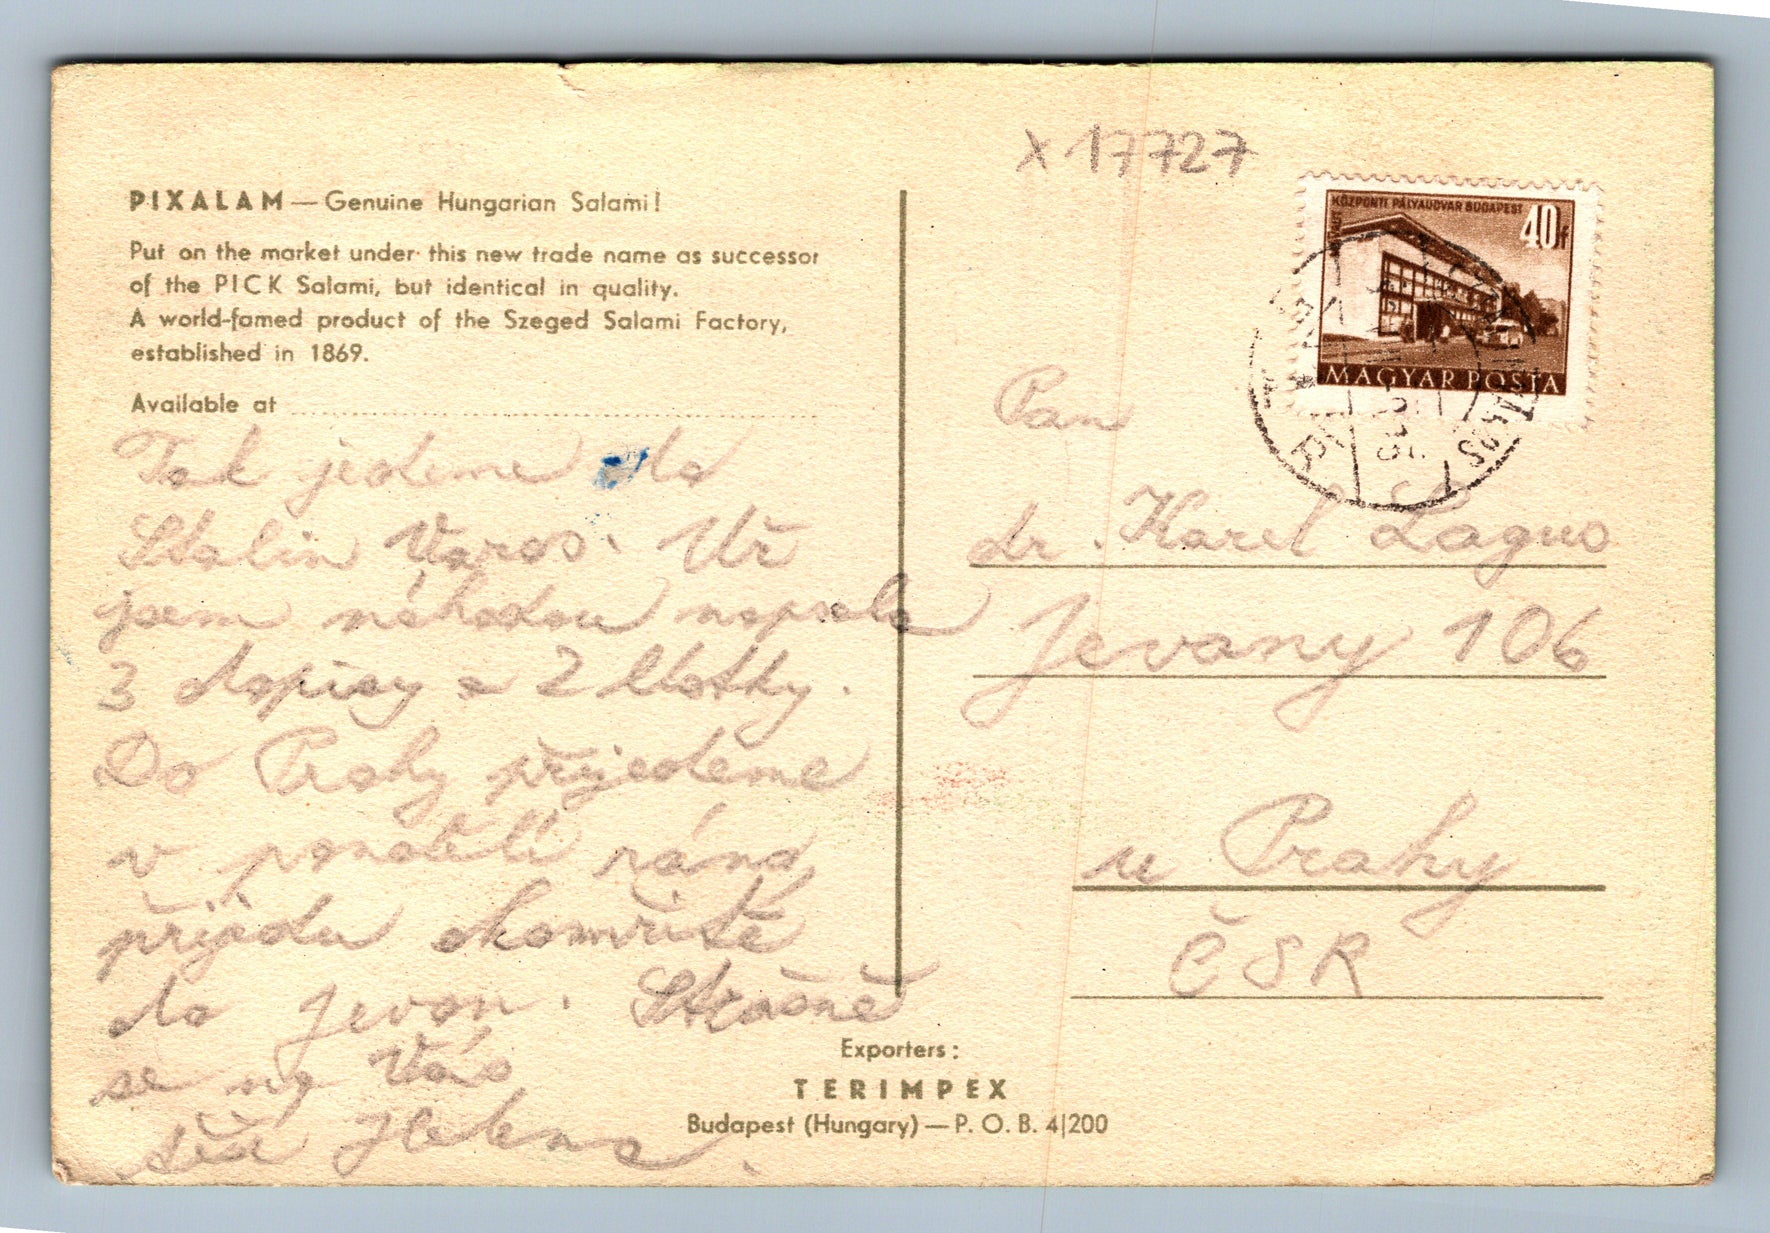 X 17727
PIXALAM — Genuine Hungarian Salami!
Put on the market under this new trade name as successor
of the PICK Salami, but identical in quality.
A world-famed product of the Szeged Salami Factory,
established in 1869.
Available at
Tak jedeme do
Stalin Varos. Už
jsem náhodou napsala
3 dopisy a 2 lístky.
Do Prahy přijedeme
v pondělí ráno,
přijedu okamžitě
do Jevan. Strašně
se na Vás
těší Helena.
KÖZPONTI PÁLYAUDVAR BUDAPEST
40f
MAGYAR POSTA
Pan
dr. Karel Laguo
Jevany 106
u Prahy
ČSR
Exporters:
TERIMPEX
Budapest (Hungary) — P. O. B. 4/200